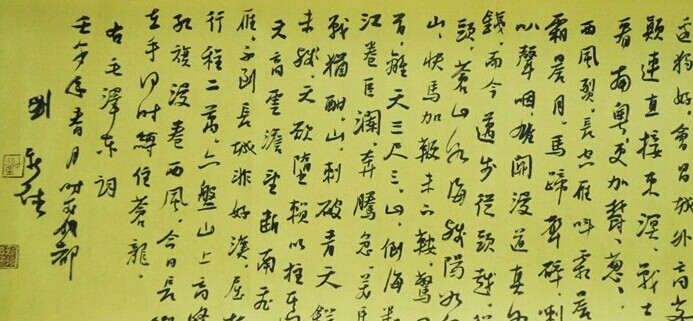 獨好會昌城外高
顛連直接東溟戰士
看南粤更加鬱葱
西風烈長空雁叫霜晨
霜晨月馬蹄聲碎喇
叭聲咽雄關漫道真如
鐵而今邁步從頭越從
頭蒼山如海殘陽如
山快馬加鞭未下鞍驚
首離天三尺三山倒海
江卷巨瀾奔騰急
戰猶酣山刺破青天鍔
未殘天欲墮賴以拄其
天高雲澹望斷南飛
雁不到長城非好漢屈
行程二萬六盤山上高峰
紅旗漫卷西風今日長
在手何時縛住蒼龍
右毛澤東詞
壬午年春月時於成都
劉